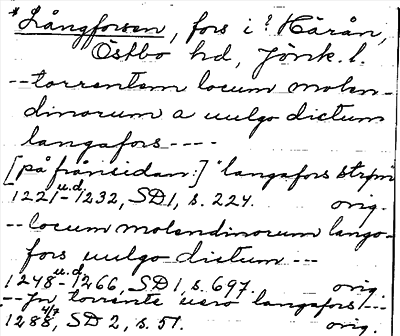 *Långforsen, fors i ? Härån,
Östbo hd, Jönk. l.
--torrentem locum molen-
dinorum a uulgo dictum
langafors----
[på frånsidan:] "langafors strøm
1221-u.d.1232, SD1, s. 224. orig.
--locum molendinorum lango-
fors uulgo dictum---
1248-u.d.1266, SD1, s. 697. orig.
--Jn torrente uero langafors---
1288, 4/7 SD 2, s. 51. orig.